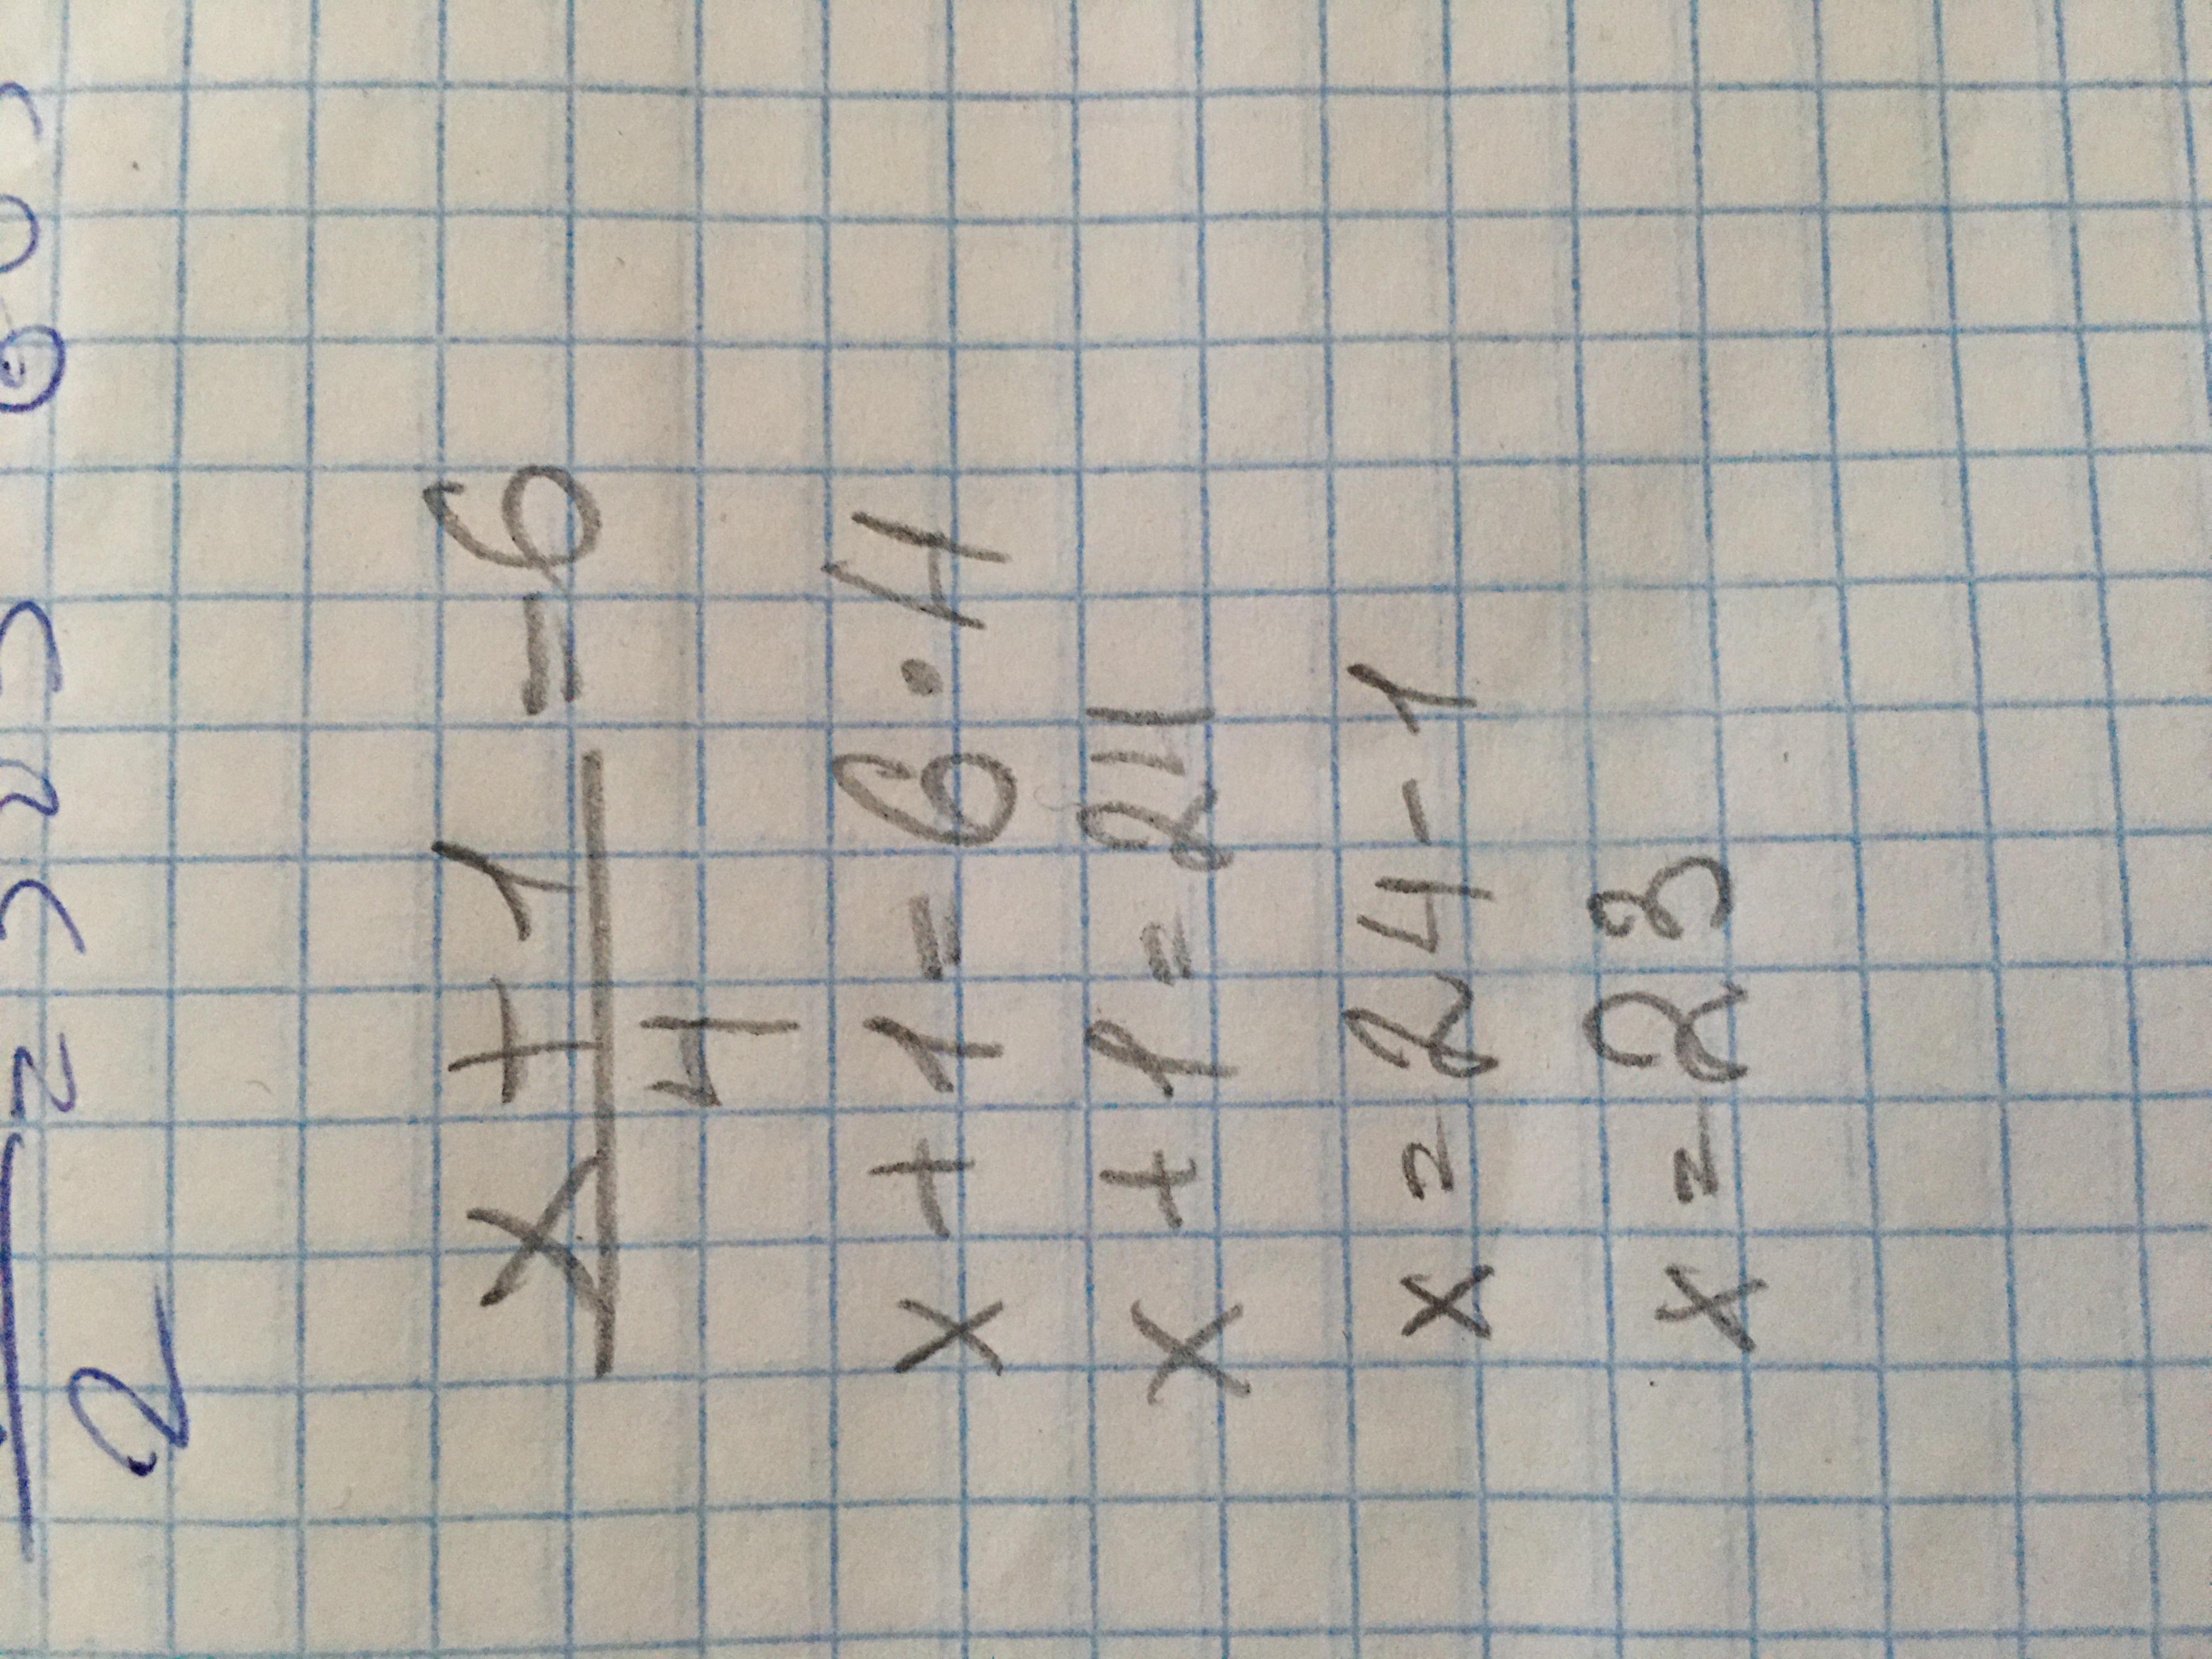 2
x + 1 = 6
4
x + 1 = 6 · 4
x + 1 = 24
x = 24 - 1
x = 23